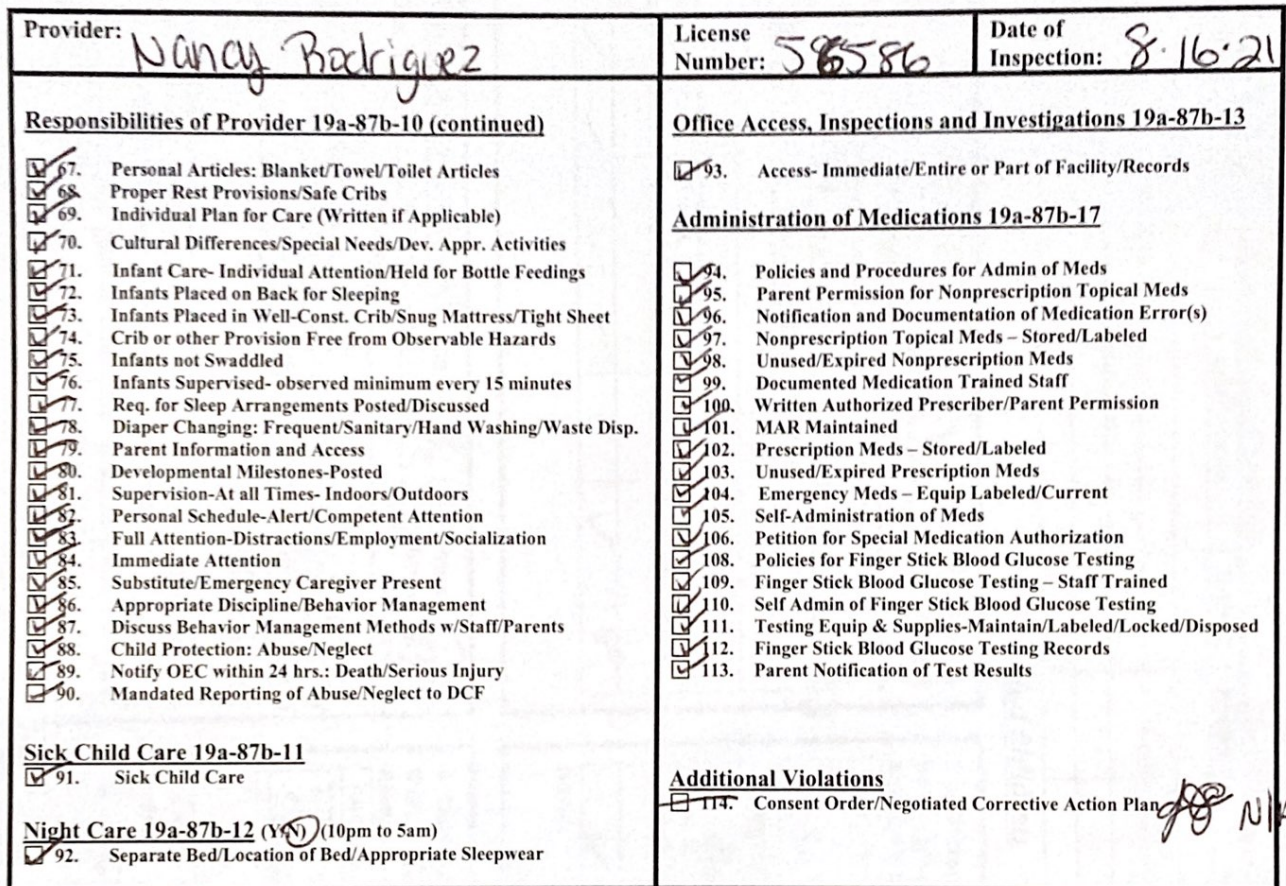 Provider: Nancy Rodriguez
License Number: 58586
Date of Inspection: 8.16.21
Responsibilities of Provider 19a-87b-10 (continued)
67. Personal Articles: Blanket/Towel/Toilet Articles
68. Proper Rest Provisions/Safe Cribs
69. Individual Plan for Care (Written if Applicable)
70. Cultural Differences/Special Needs/Dev. Appr. Activities
71. Infant Care- Individual Attention/Held for Bottle Feedings
72. Infants Placed on Back for Sleeping
73. Infants Placed in Well-Const. Crib/Snug Mattress/Tight Sheet
74. Crib or other Provision Free from Observable Hazards
75. Infants not Swaddled
76. Infants Supervised- observed minimum every 15 minutes
77. Req. for Sleep Arrangements Posted/Discussed
78. Diaper Changing: Frequent/Sanitary/Hand Washing/Waste Disp.
79. Parent Information and Access
80. Developmental Milestones-Posted
81. Supervision-At all Times- Indoors/Outdoors
82. Personal Schedule-Alert/Competent Attention
83. Full Attention-Distractions/Employment/Socialization
84. Immediate Attention
85. Substitute/Emergency Caregiver Present
86. Appropriate Discipline/Behavior Management
87. Discuss Behavior Management Methods w/Staff/Parents
88. Child Protection: Abuse/Neglect
89. Notify OEC within 24 hrs.: Death/Serious Injury
90. Mandated Reporting of Abuse/Neglect to DCF
Sick Child Care 19a-87b-11
91. Sick Child Care
Night Care 19a-87b-12 (Y/N) (10pm to 5am)
92. Separate Bed/Location of Bed/Appropriate Sleepwear
Office Access, Inspections and Investigations 19a-87b-13
93. Access- Immediate/Entire or Part of Facility/Records
Administration of Medications 19a-87b-17
94. Policies and Procedures for Admin of Meds
95. Parent Permission for Nonprescription Topical Meds
96. Notification and Documentation of Medication Error(s)
97. Nonprescription Topical Meds – Stored/Labeled
98. Unused/Expired Nonprescription Meds
99. Documented Medication Trained Staff
100. Written Authorized Prescriber/Parent Permission
101. MAR Maintained
102. Prescription Meds – Stored/Labeled
103. Unused/Expired Prescription Meds
104. Emergency Meds – Equip Labeled/Current
105. Self-Administration of Meds
106. Petition for Special Medication Authorization
108. Policies for Finger Stick Blood Glucose Testing
109. Finger Stick Blood Glucose Testing – Staff Trained
110. Self Admin of Finger Stick Blood Glucose Testing
111. Testing Equip & Supplies-Maintain/Labeled/Locked/Disposed
112. Finger Stick Blood Glucose Testing Records
113. Parent Notification of Test Results
Additional Violations
114. Consent Order/Negotiated Corrective Action Plan N/A